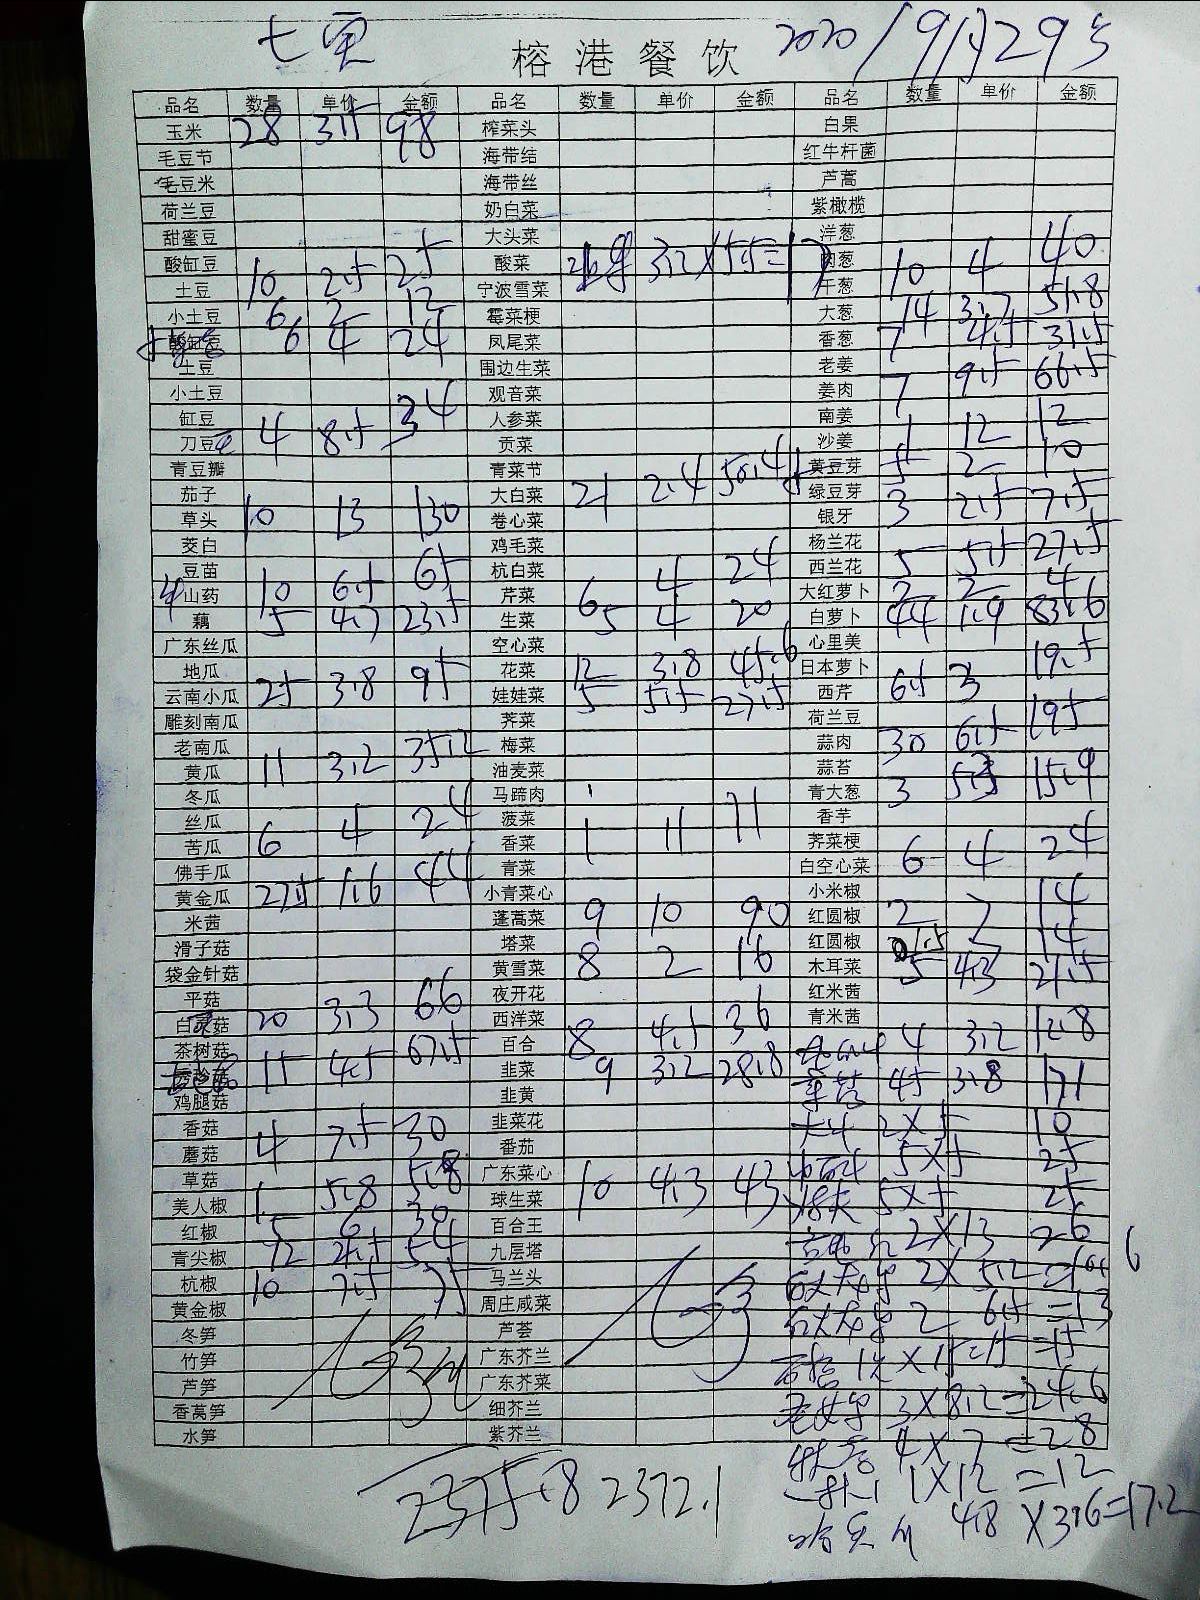 七 2020/9月29号
榕港餐饮
品名 数量 单价 金额 品名 数量 单价 金额 品名 数量 单价 金额
玉米 28 3.5 98 榨菜头 白果
毛豆节 海带结 红牛杆菌
毛豆米 海带丝 芦蒿
荷兰豆 奶白菜 紫橄榄
甜蜜豆 大头菜 洋葱
酸缸豆 10 2.5 25 酸菜 肉葱 10 4 40
土豆 6 2 12 宁波雪菜 干葱
小土豆 霉菜梗 大葱 14 3.7 51.8
酸缸豆 6 4 24 凤尾菜 香葱 7 4.5 31.5
土豆 围边生菜 老姜
小土豆 观音菜 姜肉 7 9.5 66.5
缸豆 人参菜 南姜
刀豆 4 8.5 34 贡菜 沙姜 1 12 12
青豆瓣 青菜节 黄豆芽 5 2 10
茄子 大白菜 21 2.4 50.4 绿豆芽 3 2.5 7.5
草头 10 13 130 卷心菜 银牙
茭白 鸡毛菜 杨兰花
豆苗 杭白菜 西兰花 5 5.5 27.5
山药 10 6.5 65 芹菜 6 4 24 大红萝卜 2 2 4
藕 5 4.7 23.5 生菜 5 4 20 白萝卜 44 1.9 83.6
广东丝瓜 空心菜 心里美
地瓜 花菜 12 3.8 45.6 日本萝卜
云南小瓜 25 3.8 95 娃娃菜 5 5.5 27.5 西芹 6.5 3 19.5
雕刻南瓜 荠菜 荷兰豆
老南瓜 梅菜 蒜肉 30 6.5 195
黄瓜 11 3.2 35.2 油麦菜 蒜苔
冬瓜 马蹄肉 青大葱 3 5.3 15.9
丝瓜 菠菜 香芋
苦瓜 6 4 24 香菜 1 11 11 荠菜梗
佛手瓜 青菜 白空心菜 6 4 24
黄金瓜 27.5 1.6 44 小青菜心 小米椒
米茜 蓬蒿菜 9 10 90 红圆椒 2 7 14
滑子菇 塔菜 红圆椒
袋金针菇 黄雪菜 8 2 16 木耳菜 5 4.3 21.5
平菇 夜开花 红米茜
白灵菇 20 3.3 66 西洋菜 青米茜
茶树菇 百合 8 4.5 36 4 3.2 12.8
15 4.5 67.5 韭菜 9 3.2 28.8 草菇 45 3.8 171
鸡腿菇 韭黄
香菇 韭菜花 2X5 10
蘑菇 4 7.5 30 番茄
草菇 广东菜心 5X5 25
美人椒 1 5.8 5.8 球生菜 10 4.3 43 5X5 25
红椒 5 6 30 百合王
青尖椒 12 4.5 54 九层塔 2X13 26
杭椒 10 7.5 75 马兰头 2X 5.2 =10.4
黄金椒 周庄咸菜
冬笋 芦荟 2 6.5 =13
竹笋 广东芥兰
芦笋 广东芥菜
香莴笋 细芥兰 3X8.2 =24.6
水笋 紫芥兰 4X7 =28
2375.8 2372.1 1X12 =12
4.8 X3.6=17.2